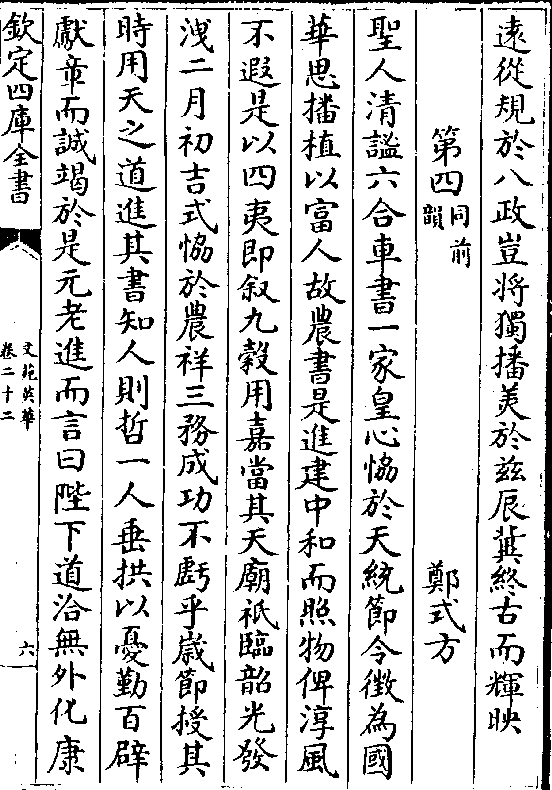 遠從規於八政豈將獨播美於兹辰冀終古而輝映
第四同前韻 鄭式方
聖人清謐六合車書一家皇心恊於天統節令徴為國
華思播植以富人故農書是進建中和而照物俾淳風
不遐是以四夷即叙九穀用嘉當其天廟祇臨韶光發
洩二月初吉式恊於農祥三務成功不虧乎嵗節授其
時用天之道進其書知人則哲一人垂拱以憂勤百辟
獻章而誠竭於是元老進而言曰陛下道洽無外化康
欽定四庫全書
文苑英華
卷二十二
六